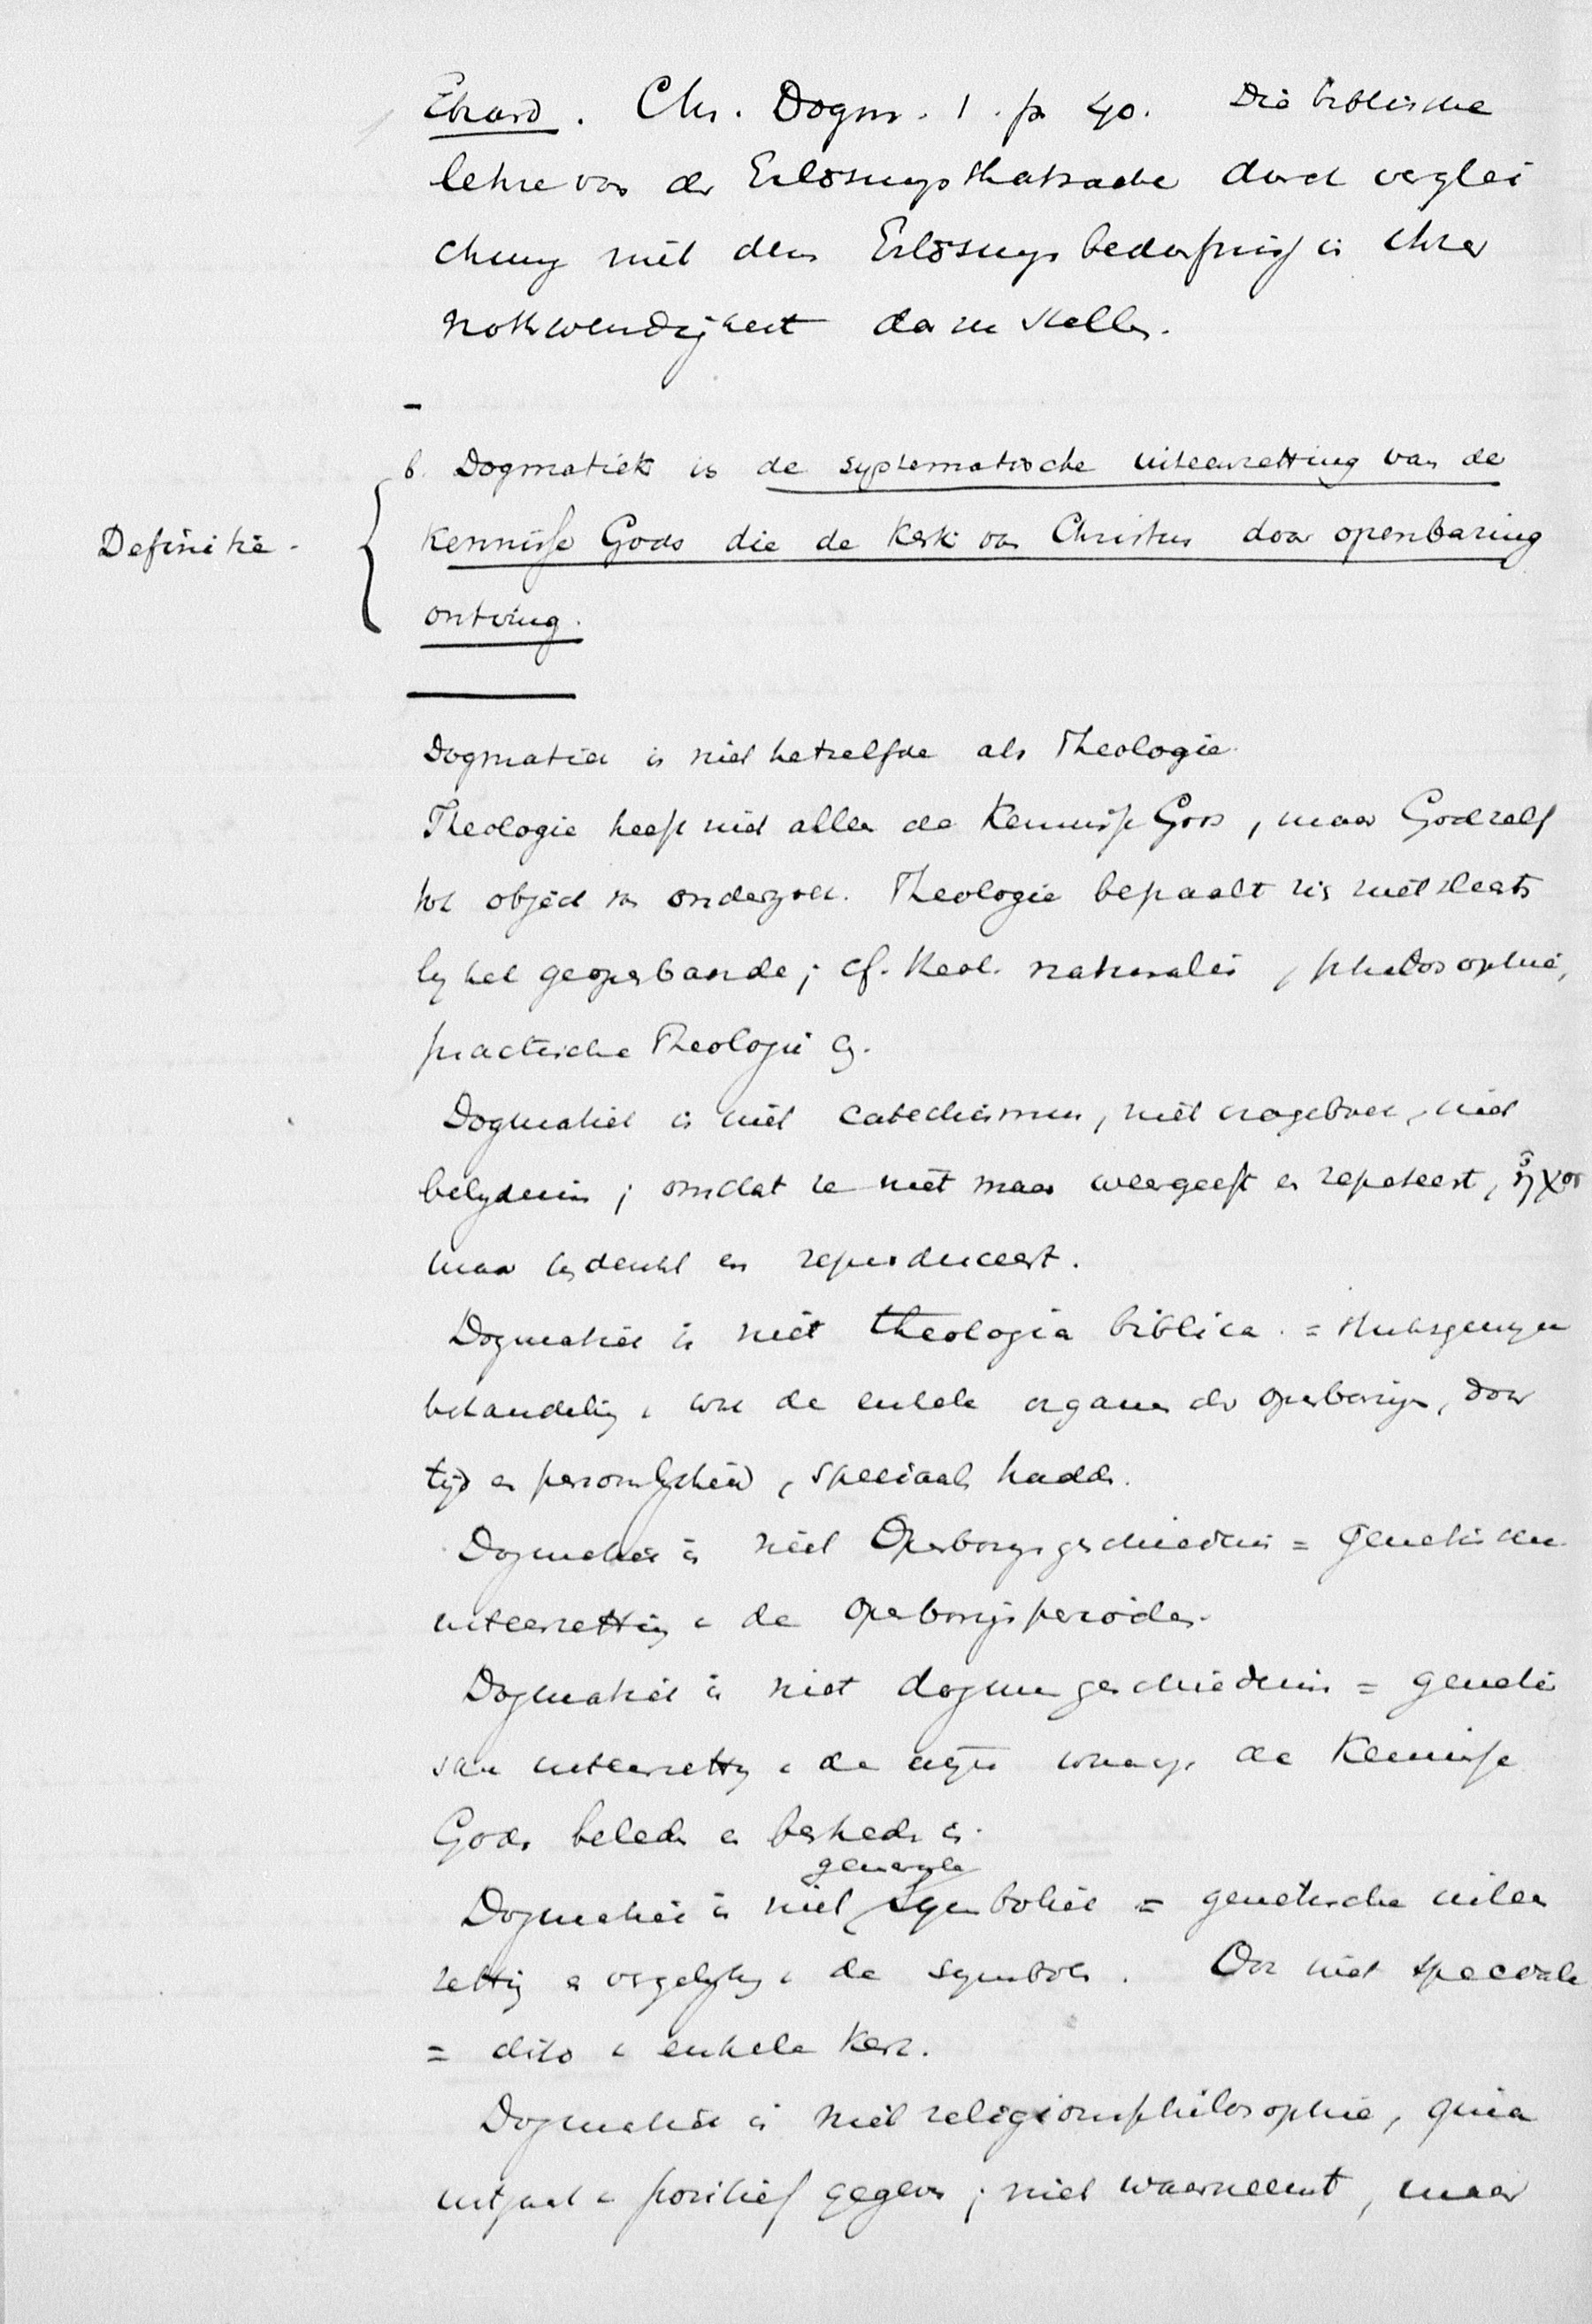 Ebrard. Chr. Dogm. 1. p. 40. Die biblische
lehre von der Erlösungsthatsache durch verglei
chung mit dem Erlösungsbedürfniss in ihrer
nothwendigkeit darzustellen.
-
b. Dogmatiek is de systematische uiteenzetting van de
Definitie.
kennisse Gods die de kerk van Christus door openbaring
ontving.
Dogmatiek is niet hetzelfde als Theologie.
Theologie heeft niet alleen de Kennisse Gods, maar God zelf
tot object van onderzoek. Theologie bepaalt zich niet slechts
bij het geopenbaarde; cf. theol. naturalis, philosophie,
practische Theologie
Dogmatiek is niet catechismus, niet vrageboek, niet
belydenis; omdat ze niet maar weergeeft en repeteert, ἦχος
maar bedenkt en reproduceert.
Dogmatiek is niet theologia biblica =
behandeling v. wat de enkele organen der openbaring, door
tijd en persoonlijkheid, speciaals hadden.
Dogmatiek is niet Openbaringsgeschiedenis = genetische
uiteenzetting v. de openbaringsperioden.
Dogmatiek is niet dogmengeschiedenis = geneti
sche uiteenzetting v. de wijze waarop de Kennisse
Gods beleden en bestreden is.
generale
Dogmatiek is niet Symboliek = genetische uiteen
zetting en vergelijking v. de symbolen. Ook niet speciale
= dito v. enkele kerk.
Dogmatiek is niet religionsphilosophie, quia
uitgaat v. positief gegeven; niet waarneemt, maar